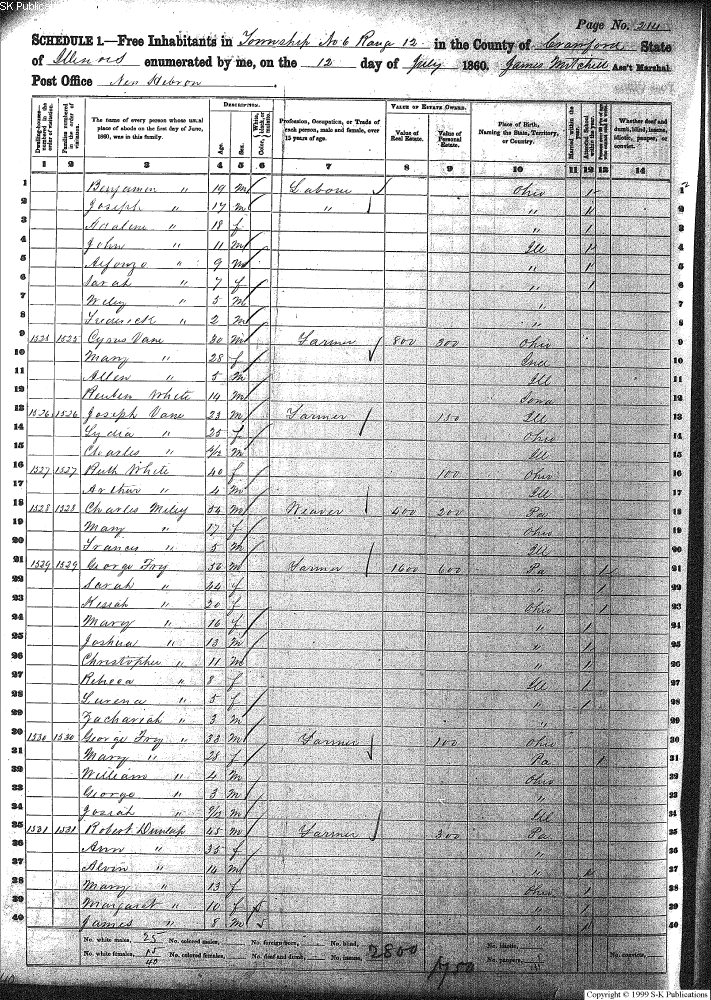 SK Publications
Page No. 214
SCHEDULE 1.—Free Inhabitants in Township No 6 Rang 12 in the County of Crawford State
of Illinois enumerated by me, on the 12 day of July 1860. James Mitchell Ass't Marshal.
Post Office New Hebron
Dwelling-houses—numbered in the order of visitation.
Families numbered in the order of visitation.
The name of every person whose usual place of abode on the first day of June, 1860, was in this family.
DESCRIPTION.
Age.
Sex.
Color, White, black, or mulatto.
Profession, Occupation, or Trade of each person, male and female, over 15 years of age.
VALUE OF ESTATE OWNED.
Value of Real Estate.
Value of Personal Estate.
Place of Birth, Naming the State, Territory, or Country.
Married within the year.
Attended School within the year.
Whether deaf and dumb, blind, insane, idiotic, pauper, or convict.
1 2 3 4 5 6 7 8 9 10 11 12 13 14
1 Benjamin " 19 m Labour Ohio 1 1
2 Joseph " 17 m " " 1 2
3 " 18 f " 1 3
4 John " 11 m Ill 1 4
5 Alfonzo " 9 m " 1 5
6 Sarah " 7 f " 1 6
7 Wiley " 5 m " 7
8 Frederick " 2 m " 8
9 1525 1525 Cyrus Vane 30 m Farmer 800 300 Ohio 9
10 Mary " 28 f Ind 10
11 Allen " 5 m Ill 11
12 Reuben White 14 m Iowa 12
13 1526 1526 Joseph Vane 23 m Farmer 150 Ill 13
14 Lydia " 25 f Ohio 14
15 Charles " /12 m Ill 15
16 1527 1527 Ruth White 40 f 100 Ohio 16
17 Arthur " 4 m Ill 17
18 1528 1528 Charles Meley 54 m Weaver 400 200 Pa 18
19 Mary " 17 f Ohio 19
20 Francis " 5 m Ill 20
21 1529 1529 George Fry 56 m Farmer 1600 600 Pa 1 21
22 Sarah " 44 f " 1 22
23 Kisiah " 20 f Ohio 1 23
24 Mary " 16 f " 1 24
25 Joshua " 13 m " 1 25
26 Christopher " 11 m " 1 26
27 Rebecca " 8 f Ill 1 27
28 Lurena " 5 f " 1 28
29 Zachariah " 3 m " 29
30 1530 1530 George Fry " 33 m Farmer 100 Ohio 30
31 Mary " 28 f Pa 1 31
32 William " 4 m Ohio 32
33 George " 3 m " 33
34 Josiah " /12 m Ill 34
35 1531 1531 Robert Dunlap 45 m Farmer 300 Pa 35
36 Ann " 35 f " 36
37 Alvin " 14 m " 1 37
38 Mary " 13 f Ohio 1 38
39 Margaret " 10 f " 1 39
40 James " 8 m " 1 40
No. white males, 25 No. colored males, No. foreign born, No. blind, 2800 No. idiotic,
No. white females, 15 No. colored females, No. deaf and dumb, No. insane, 1750 No. paupers, No. convicts,
40
Copyright © 1999 S-K Publications